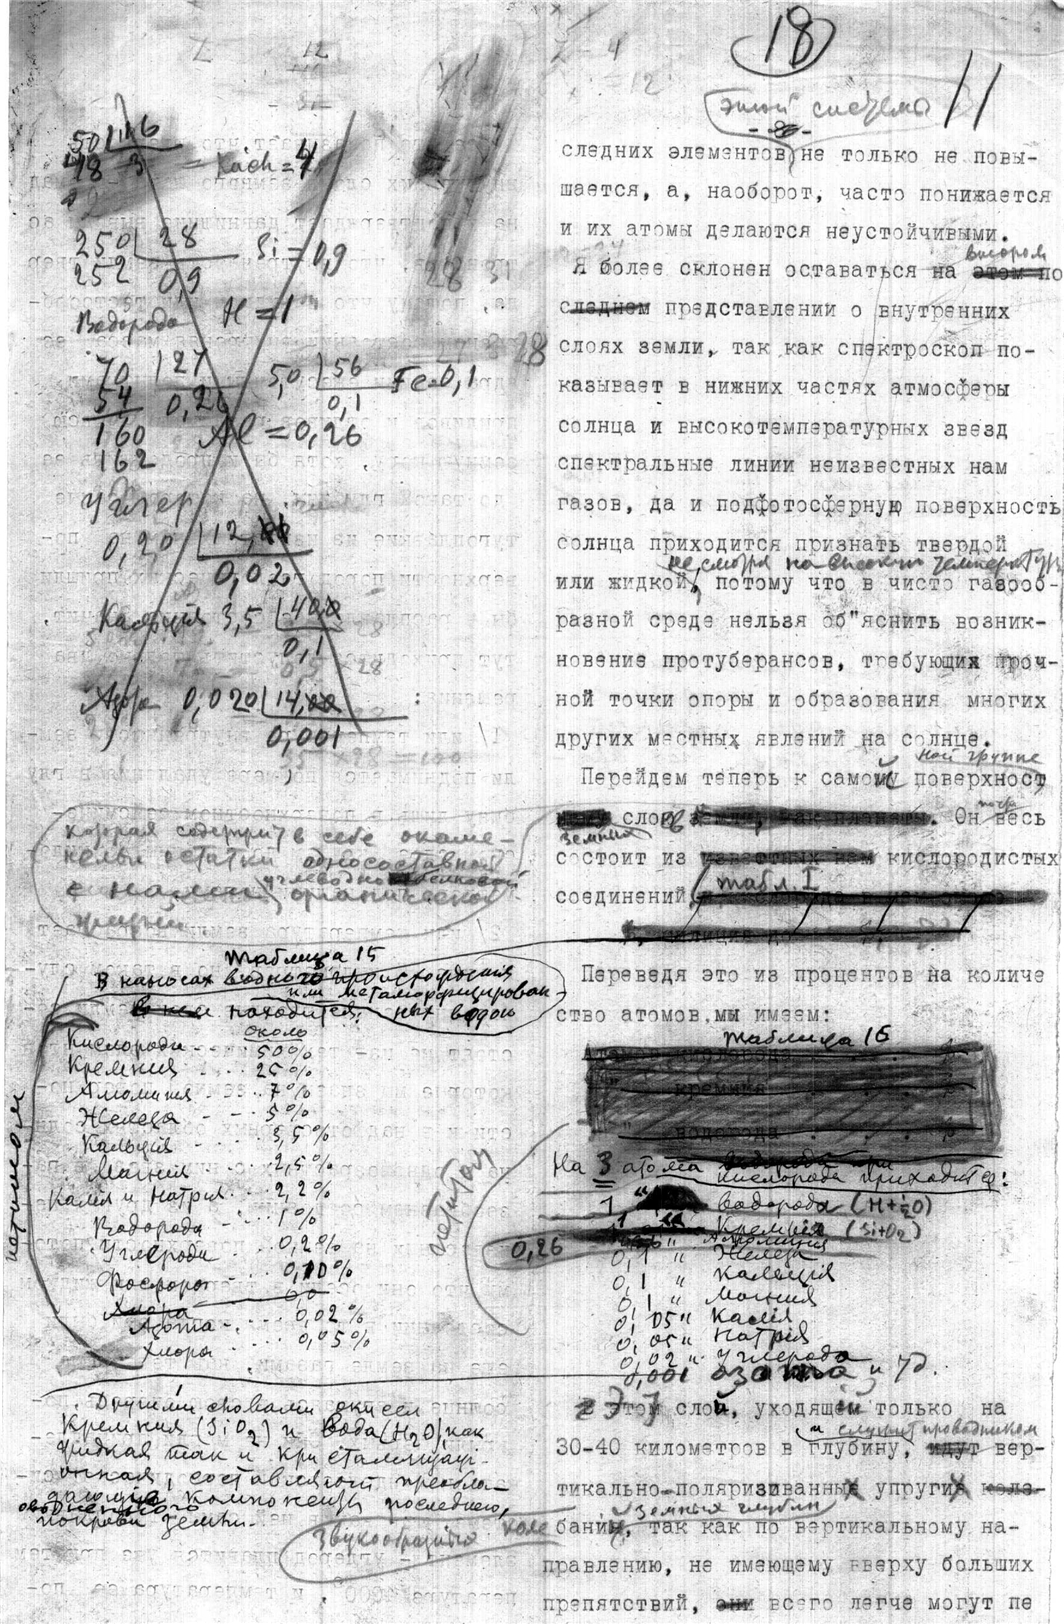 18
11
этой системы
-8-
следних элементов не только не повы-
шается, а, наоборот, часто понижается
и их атомы делаются неустойчивыми.
втором
Я более склонен оставаться на этом по
следнем представлении о внутренних
слоях земли, так как спектроскоп по-
казывает в нижних частях атмосферы
солнца и высокотемпературных звезд
спектральные линии неизвестных нам
газов, да и подфотосферную поверхность
солнца приходится признать твердой
не смотря на высокую температуру
или жидкой, потому что в чисто газооб-
разной среде нельзя об"яснить возник-
новение протуберансов, требующих проч-
ной точки опоры и образования многих
других местных явлений на солнце.
ной группе
Перейдем теперь к самой поверхност
слоев земли, как планеты. Он почти весь
земных
состоит из известных нам кислородистых
табл. I
соединений,
Переведя это из процентов на количе
ство атомов мы имеем:
Таблица 16
Атомов кислорода
" кремния
" водорода
На 3 атома кислорода приходится:
1 " водорода (H+O)
1 " Кремния (Si+O2)
0,26 " Алюминия
0,1 " Железа
0,1 " Кальция
0,1 " Магния
0,05 " Калия
0,05 " Натрия
0,02 " Углерода
0,001 азота и т д.
петитом
Этот слой, уходящий только на
и служит проводником
30-40 километров в глубину, идут вер-
тикально-поляризиванных упругих коле-
земных глубин
звукообразных коле
баний, так как по вертикальному на-
правлению, не имеющему вверху больших
препятствий, они всего легче могут пе
50 | 16
48 3
= Kach = 4
250 | 28
252 0,9
Si = 0,9
Водорода H = 1
70 | 27
54 0,26
160
162
Al = 0,26
5,0 | 56
0,1
Fe=0,1
Углер
0,20 | 12,00
0,02
Кальция 3,5 | 40,0
0,1
Азота 0,020 | 14,00
0,001
которая содержит в себе окаме-
нелые остатки односоставной
с нами углеводно белковой органической
жизни
Таблица 15
В наносах водного происхождения
или метаморфизирован-
ных водою
находится:
около
Кислорода 50%
Кремния 25%
Алюминия 7%
Железа 5%
Кальция 3,5%
Магния 2,5%
Калия и Натрия 2,2%
Водорода 1%
Углерода 0,2%
Фосфора 0,10%
Хлора
Азота 0,02%
Хлора 0,05%
петитом
Другими словами окиси
Кремния (SiO2) и Вода (H2O), как
жидкая так и кристаллизаци-
онная, составляют преобла-
дающие компоненты последнего,
оводненного
покрова земли.